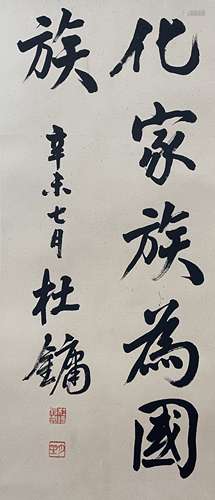 化家族為國
族
辛未七月
杜鏞